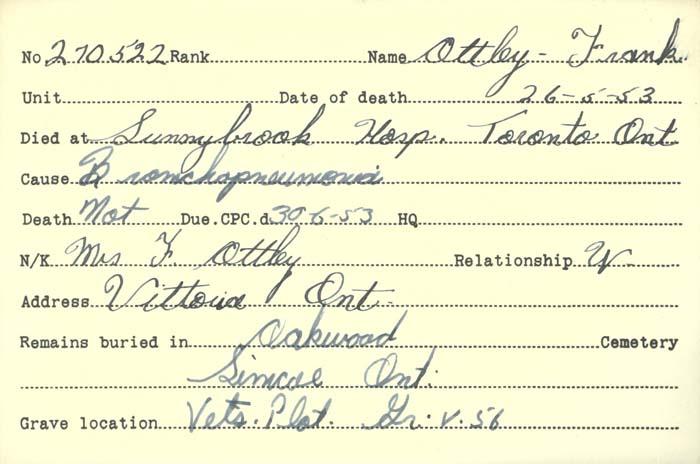 No. 270522 Rank Name Ottley - Frank.
Unit Date of death 26-5-53
Died at Sunnybrook Hosp. Toronto Ont
Cause Bronchopneumonia
Death Not Due.CPC.d 30-6-53 HQ
N/K Mrs F. Ottley Relationship W
Address Vittoria Ont.
Remains buried in Oakwood Cemetery
Simcoe Ont.
Grave location Vets. Plot. Gr. V. 56